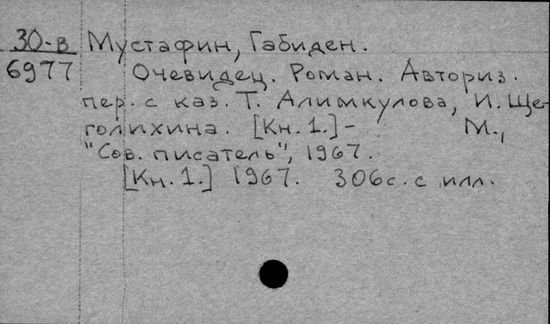 30-в Мустафин, Габиден.
6977 Очевидец. Роман. Авториз.
пер. с каз. Т. Алимкулова, И. Ще-
голихина. [Кн. 1.]- М.,
"Сов. писатель", 1967.
[Кн. 1.] 1967. 306с. с илл.